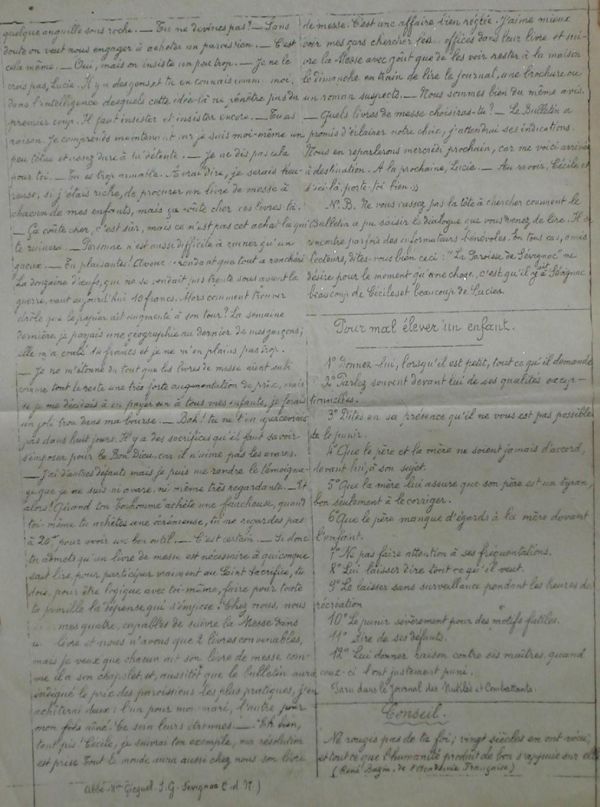 quelque anguille sous roche. — Tu ne devines pas? — Sans
doute on veut nous engager à acheter un paroissien. — C'est
cela même. — Oui, mais on insiste un peu trop. — Je ne le
crois pas, Lucie. Il y a des gens, et tu en connais comme moi,
dans l'intelligence desquels cette idée-là ne pénètre pas du
premier coup. Il faut insister et insister encore. — Tu as
raison. Je comprends maintenant car je suis moi-même un
peu têtue et assez dure à la détente. — Je ne dis pas cela
pour toi. — Tu es trop aimable. À vrai dire, je serais heu-
reuse, si j'étais riche, de procurer un livre de messe à
chacun de mes enfants, mais ça coûte cher ces livres là.
— Ça coûte cher, c'est sûr, mais ce n'est pas cet achat là qui
te ruinera. — Personne n'est aussi difficile à ruiner qu'un
gueux. — Tu plaisantes! Avoue cependant que tout a renchéri
La douzaine d'œufs, qui ne se vendait pas trente sous avant la
guerre, vaut aujourd'hui 10 francs. Alors comment trouver
drôle que le papier ait augmenté à son tour? La semaine
dernière je payais une géographie au dernier de mes garçons;
elle m'a coûté 10 francs et je ne m'en plains pas trop.
— Je ne m'étonne du tout que les livres de messe aient subi
comme tout le reste une très forte augmentation de prix, mais
si je me décidais à en payer un à tous mes enfants, je ferais
un joli trou dans ma bourse. — Bah! tu ne t'en apercevrais
pas dans huit jours. Il y a des sacrifices qu'il faut savoir
s'imposer pour le Bon Dieu, car il n'aime pas les avares.
— J'ai d'autres défauts mais je puis me rendre le témoigna-
ge que je ne suis ni avare, ni même très regardante. — Et
alors! Quand ton bonhomme achète une faucheuse, quand
toi-même tu achètes une écrémeuse, tu ne regardes pas
à 20f pour avoir un bon outil. — C'est certain. — Si donc
tu admets qu'un livre de messe est nécessaire à quiconque
sait lire, pour participer vraiment au Saint Sacrifice, tu
dois, pour être logique avec toi-même, faire pour toute
ta famille la dépense qui s'impose. Chez nous, nous
sommes quatre, capables de suivre la Messe dans
un livre et nous n'avons que 2 livres convenables,
mais je veux que chacun ait son livre de messe com-
me il a son chapelet et, aussitôt que le bulletin aura
indiqué le prix des paroissiens les plus pratiques, j'en
achèterai deux: l'un pour mon mari, l'autre pour
mon fils aîné. Ce sera leurs étrennes. — Eh bien,
tant pis! Cécile, je suivrai ton exemple, ma résolution
est prise. Tout le monde aura aussi chez nous son livre
Abbé Gicquel. I.G. Sévignac (C. d. N.)
de messe. C'est une affaire bien réglée. J'aime mieux
voir mes gars chercher les offices dans leur livre et sui-
vre la Messe avec goût que de les voir rester à la maison
le dimanche en train de lire le journal, une brochure ou
un roman suspects. — Nous sommes bien du même avis.
— Quels livres de messe choisiras-tu? — Le Bulletin a
promis d'éclairer notre choix, j'attendrai ses indications.
Nous en reparlerons mercredi prochain, car me voici arrivée
à destination. À la prochaine, Lucie. — Au revoir, Cécile et
d'ici-là, porte-toi bien. »
N.B. Ne vous cassez pas la tête à chercher comment le
Bulletin a pu saisir le dialogue que vous venez de lire. Il
rencontre parfois des informateurs bénévoles. En tous cas, amis
lecteurs, dites-vous bien ceci: "La Paroisse de Sévignac" ne
désire pour le moment qu'une chose, c'est qu'il y ait à Sévignac
beaucoup de Céciles et beaucoup de Lucies.
Pour mal élever un enfant.
1° Donnez-lui, lorsqu'il est petit, tout ce qu'il demande
2° Parlez souvent devant lui de ses qualités excep-
tionnelles.
3° Dites en sa présence qu'il ne vous est pas possible
de le punir.
4° Que le père et la mère ne soient jamais d'accord,
devant lui, à son sujet.
5° Que la mère lui assure que son père est un tyran,
bon seulement à le corriger.
6° Que le père manque d'égards à la mère devant
l'enfant.
7° Ne pas faire attention à ses fréquentations.
8° Lui laisser dire tout ce qu'il veut.
9° Le laisser sans surveillance pendant les heures de
récréation.
10° Le punir sévèrement pour des motifs futiles.
11° Rire de ses défauts.
12° Lui donner raison contre ses maîtres quand
ceux-ci l'ont justement puni.
Paru dans le Journal des Mutilés et Combattants.
Conseil.
Ne rougis pas de ta foi; vingt siècles en ont vécu
et tout ce que l'humanité produit de bon s'appuie sur elle
(René Bazin, de l'Académie Française)